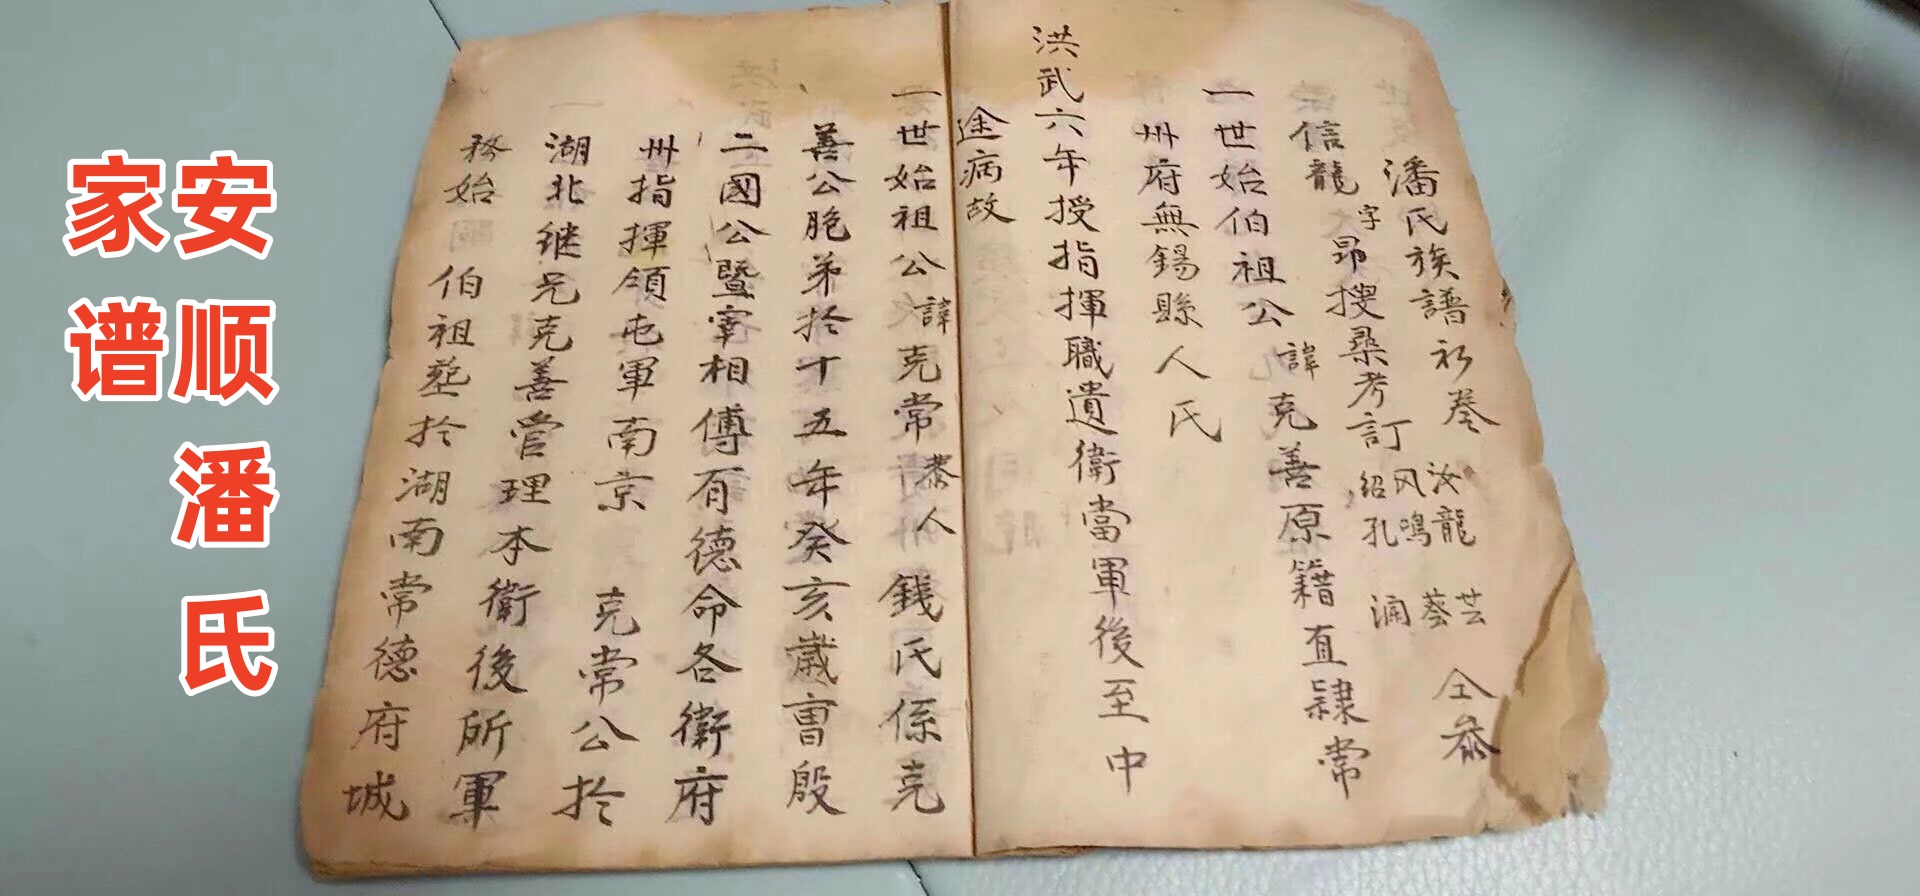 安顺潘氏
家谱
潘氏族譜初叅 汝龍 芸 仝叅
风鳴 蔡
绍孔 润
信龍字昂搜桑考訂
一世始伯祖公諱克善原籍直隸常
州府無锡縣人氏
洪武六年授指揮職遺衛當軍後至中
途病故
一世始祖公諱克常恭人錢氏係克
善公胞弟扵十五年癸亥歲曺殷
二國公暨宰相傅有德命各衛府
州指揮領屯軍南京 克常公扵
湖北继兄克善管理本衛後所軍
務始伯祖塟扵湖南常德府城